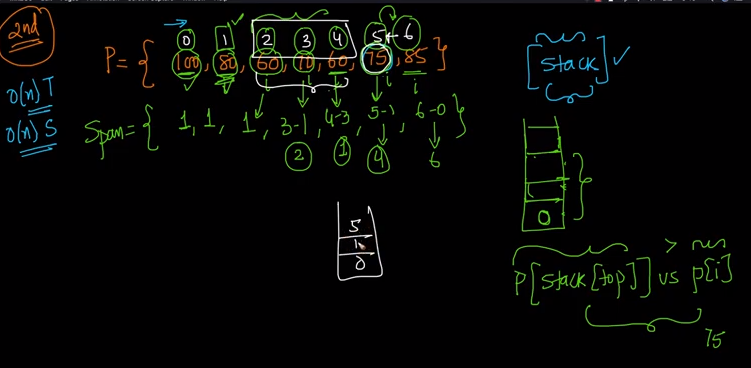 2nd
O(n) T
O(n) S
0 1 2 3 4 5 ← 6
P = { 100, 80, 60, 70, 60, 75, 85 }
Span = { 1, 1, 1, 3-1, 4-3, 5-1, 6-0 }
2 1 4 6
[stack] ✓
0
5
1
0
> 
P[stack[top]] vs p[i]
75